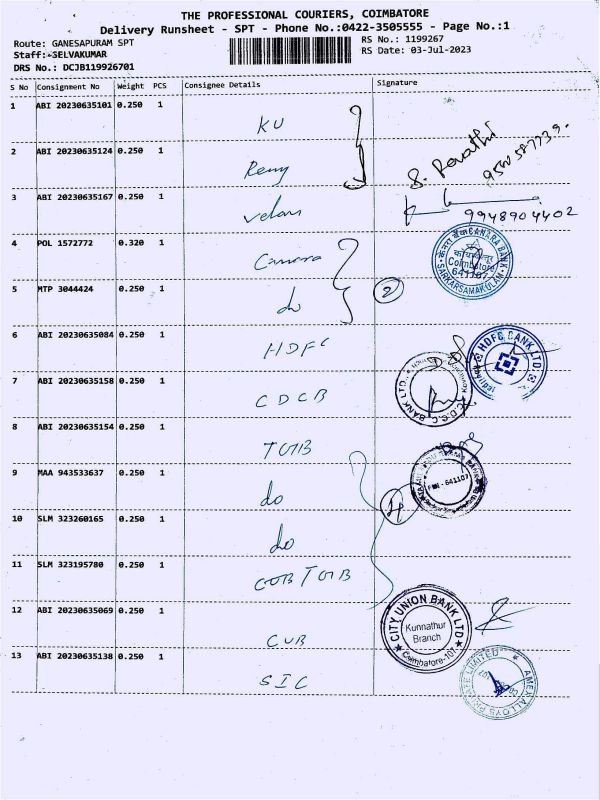 THE PROFESSIONAL COURIERS, COIMBATORE
Delivery Runsheet - SPT - Phone No.:0422-3505555 - Page No.:1
Route: GANESAPURAM SPT
RS No.: 1199267
Staff:-SELVAKUMAR
RS Date: 03-Jul-2023
DRS No.: DCJB119926701
S No Consignment No Weight PCS Consignee Details Signature
1 ABI 20230635101 0.250 1 KU
2 ABI 20230635124 0.250 1 Remy
S. Revathi
3 ABI 20230635167 0.250 1 Velan
9948904402
4 POL 1572772 0.320 1 Canara
केनरा बैंक CANARA BANK
Coimbatore
641107
SARKARSAMAKULAM
5 MTP 3044424 0.250 1 do 2
6 ABI 20230635084 0.250 1 HDFC
HDFC BANK LTD.
7 ABI 20230635158 0.250 1 CDCB
BANK LTD.
8 ABI 20230635154 0.250 1 TMB
9 MAA 943533637 0.250 1 do
PIN - 641107
10 SLM 323260165 0.250 1 do 4
11 SLM 323195780 0.250 1 CUB TMB
12 ABI 20230635069 0.250 1 CUB
CITY UNION BANK LTD
Kunnathur
Branch
Coimbatore-107
13 ABI 20230635138 0.250 1 SIC
AMEX ALLOYS PRIVATE LIMITED